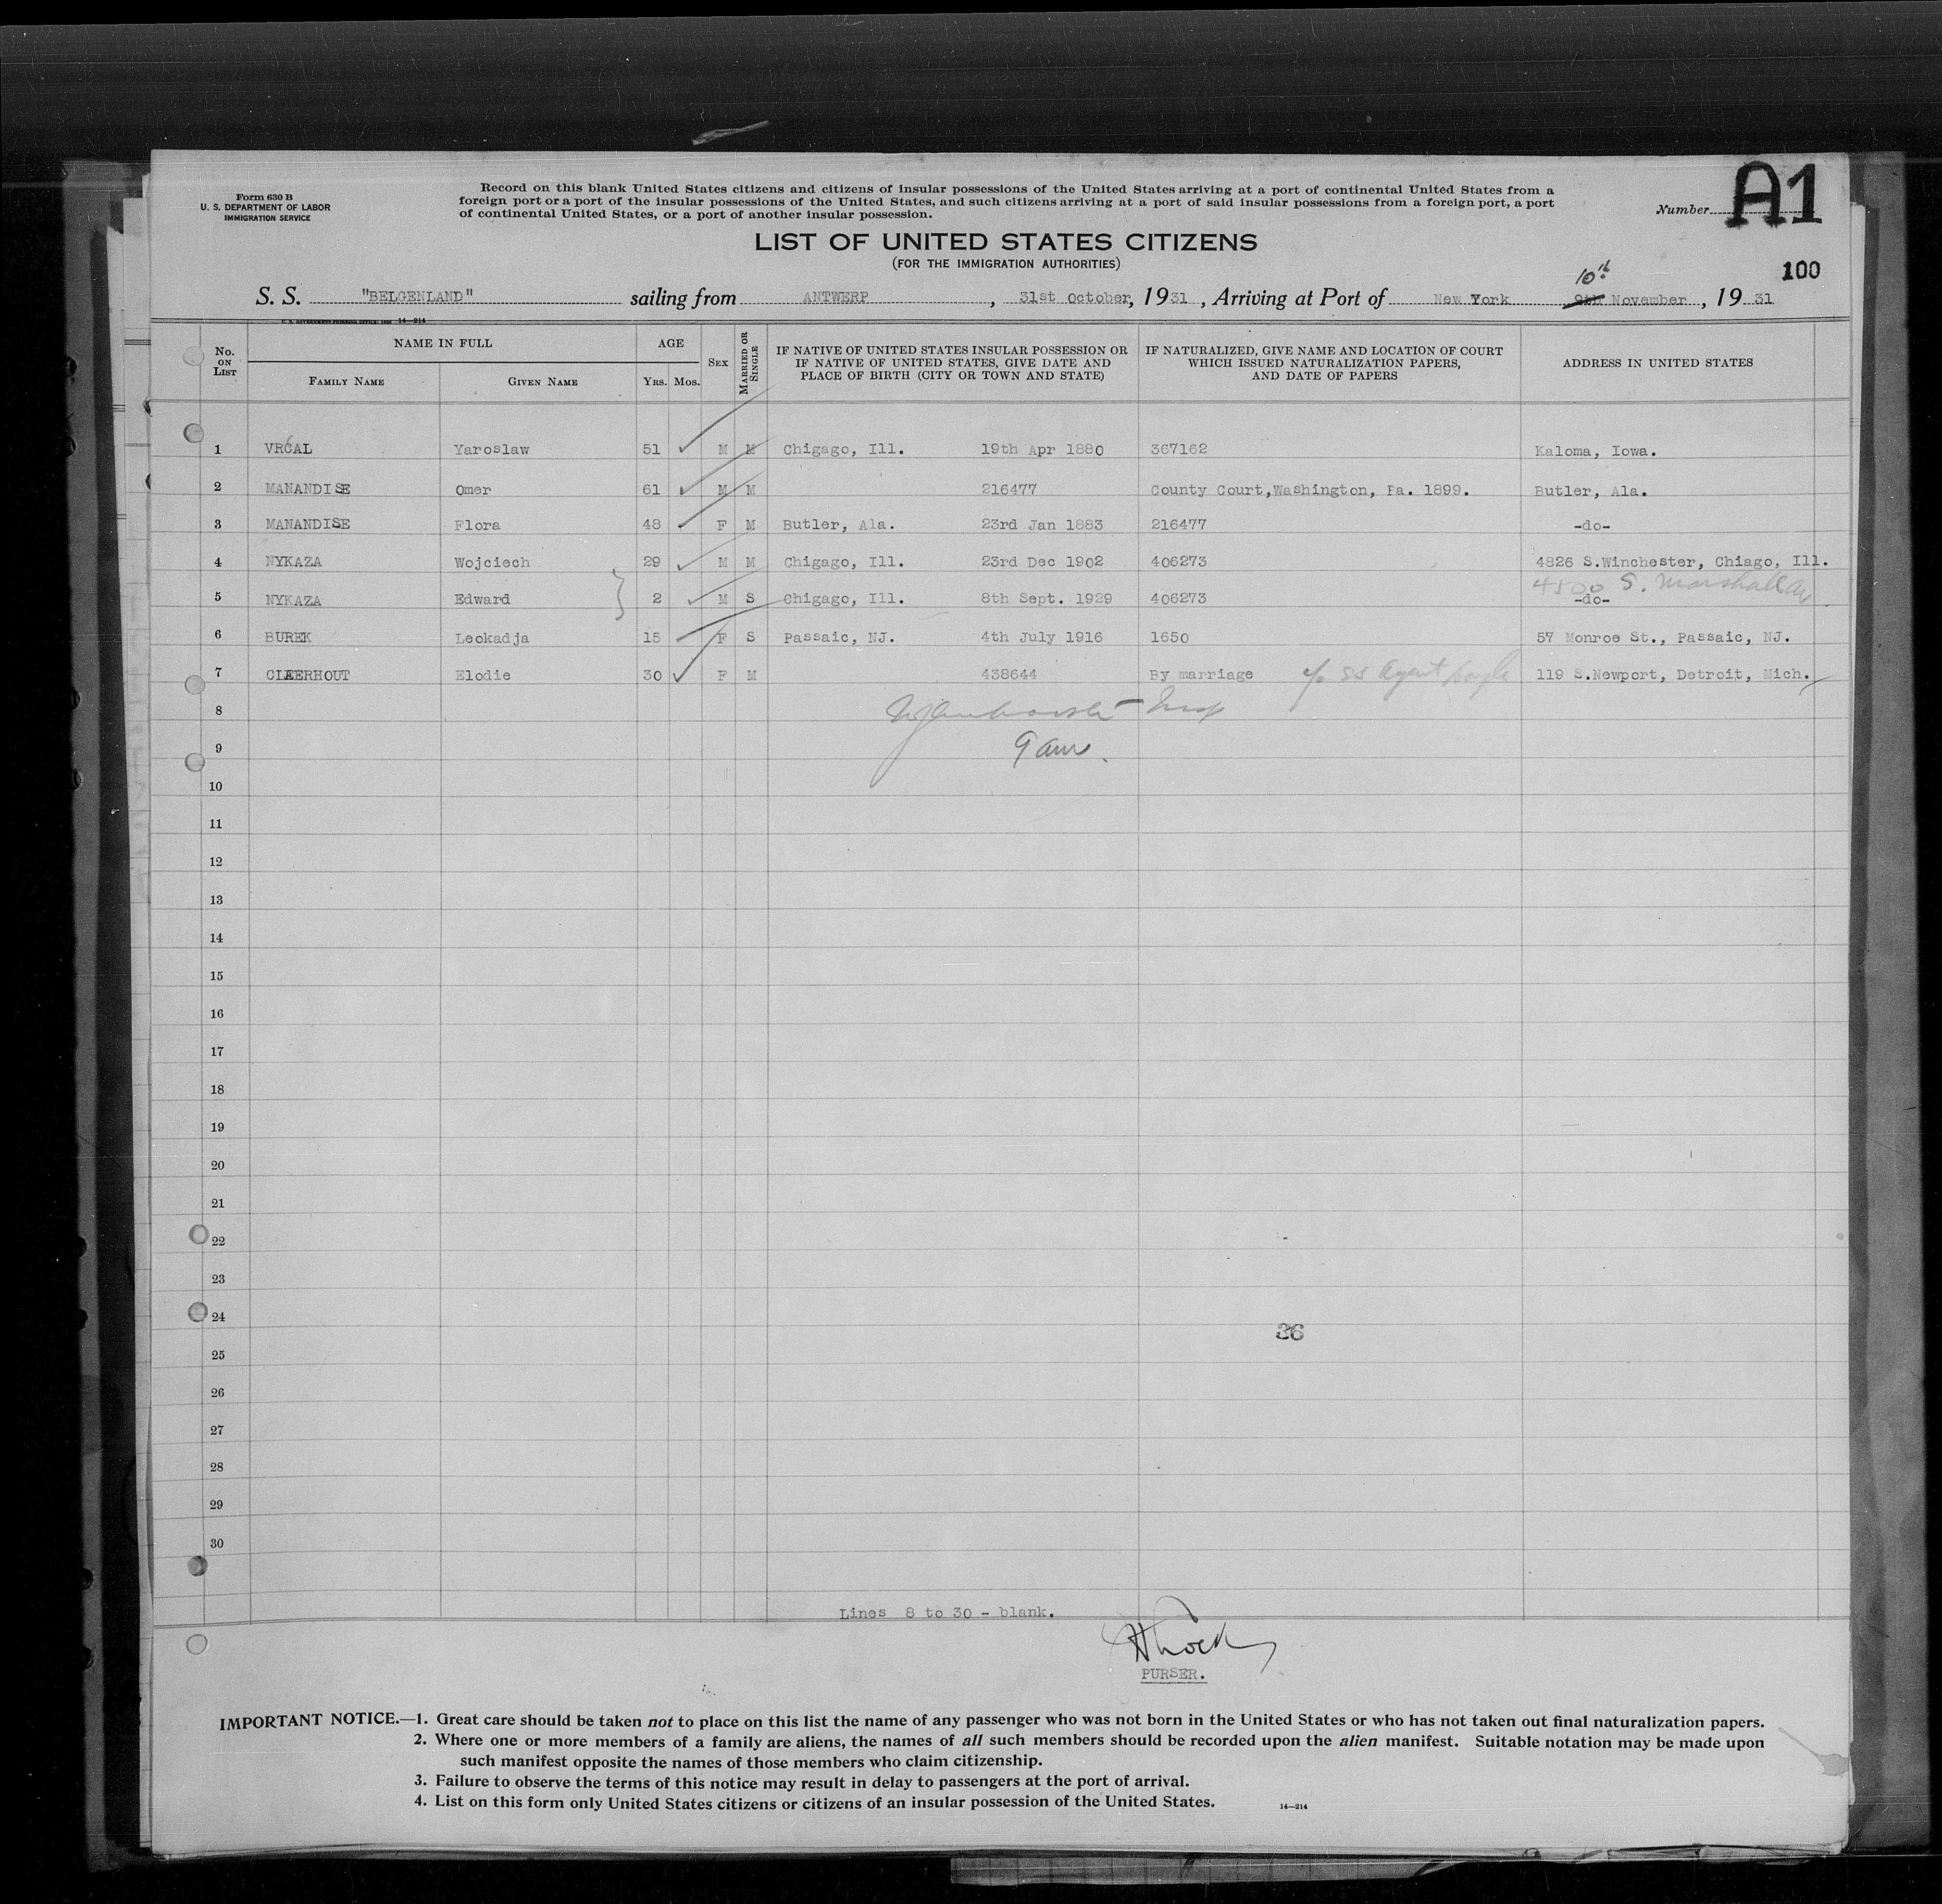 Form 630 B
U. S. DEPARTMENT OF LABOR
IMMIGRATION SERVICE
Record on this blank United States citizens and citizens of insular possessions of the United States arriving at a port of continental United States from a
foreign port or a port of the insular possessions of the United States, and such citizens arriving at a port of said insular possessions from a foreign port, a port
of continental United States, or a port of another insular possession.
Number A1
LIST OF UNITED STATES CITIZENS
(FOR THE IMMIGRATION AUTHORITIES)
100
10th
S. S. "BELGENLAND" sailing from ANTWERP, 31st October, 1931, Arriving at Port of New York 9th November, 19 31
14—214
No. ON LIST
NAME IN FULL
FAMILY NAME
GIVEN NAME
AGE
YRS. MOS.
SEX
MARRIED OR SINGLE
IF NATIVE OF UNITED STATES INSULAR POSSESSION OR
IF NATIVE OF UNITED STATES, GIVE DATE AND
PLACE OF BIRTH (CITY OR TOWN AND STATE)
IF NATURALIZED, GIVE NAME AND LOCATION OF COURT
WHICH ISSUED NATURALIZATION PAPERS,
AND DATE OF PAPERS
ADDRESS IN UNITED STATES
1 VRCAL Yaroslaw 51 M M Chigago, Ill. 19th Apr 1880 367162 Kaloma, Iowa.
2 MANANDISE Omer 61 M M 216477 County Court,Washington, Pa. 1899. Butler, Ala.
3 MANANDISE Flora 48 F M Butler, Ala. 23rd Jan 1883 216477 -do-
4 NYKAZA Wojciech 29 M M Chigago, Ill. 23rd Dec 1902 406273 4826 S.Winchester, Chiago, Ill.
4500 S. Marshall Av
5 NYKAZA Edward 2 M S Chigago, Ill. 8th Sept. 1929 406273 -do-
6 BUREK Leokadja 15 F S Passaic, NJ. 4th July 1916 1650 57 Monroe St., Passaic, NJ.
7 CLAERHOUT Elodie 30 F M 438644 By marriage c/o SS Agent 119 S.Newport, Detroit, Mich.
8
9
10
11
12
13
14
15
16
17
18
19
20
21
22
23
24
36
25
26
27
28
29
30
Lines 8 to 30 - blank.
PURSER.
IMPORTANT NOTICE.—1. Great care should be taken not to place on this list the name of any passenger who was not born in the United States or who has not taken out final naturalization papers.
2. Where one or more members of a family are aliens, the names of all such members should be recorded upon the alien manifest. Suitable notation may be made upon
such manifest opposite the names of those members who claim citizenship.
3. Failure to observe the terms of this notice may result in delay to passengers at the port of arrival.
4. List on this form only United States citizens or citizens of an insular possession of the United States.
14—214